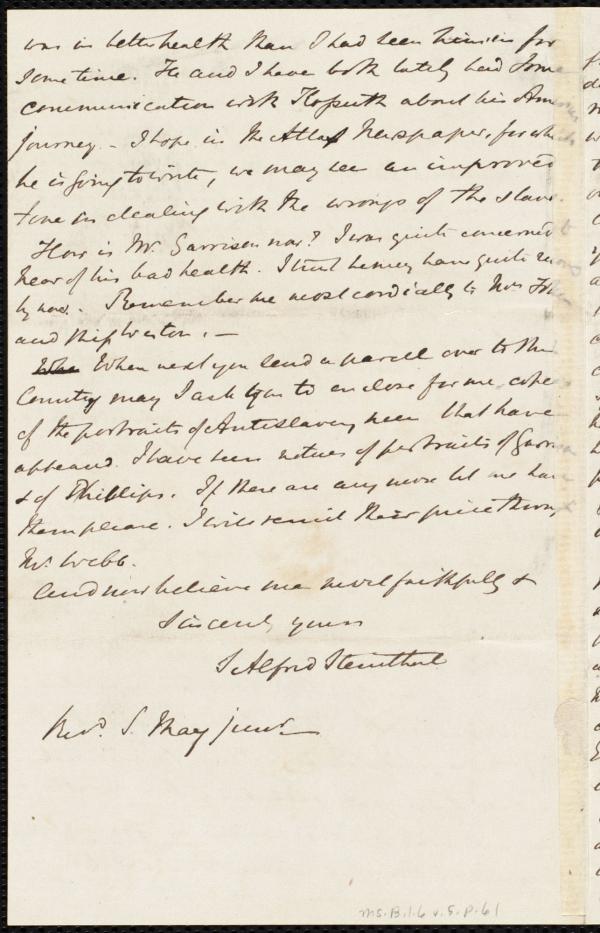 was in better health than I had seen him in for
some time. He and I have both lately had some
communication with Kossuth about his Ame
journey. - I hope in the Atlas Newspaper, for wh
he is going to write, we may see an improved
tone in dealing with the wrongs of the slave.
How is Mr. Garrison now? I was quite concerned to
hear of his bad health. I trust he may have quite
by now. Remember me most cordially to Mrs
and Miss Weston. —
When next you send a parcel over to this
Country may I ask you to enclose for me
of the portraits of Antislavery men that have
appeared. I have seen notices of portraits of Garri
& of Phillips. If there are any more let me have
them please. I will remit their price through
Mr. Webb.
And now believe me most faithfully &
Sincerely yours
S Alfred Steinthal
Revd. S. May junr.
Ms. B. 1. 6 v. 5. p. 61